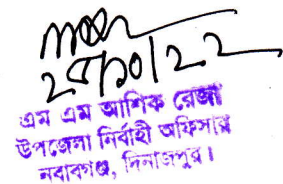 ২৭/১০/২২
এম এম আশিক রেজা
উপজেলা নির্বাহী অফিসার
নবাবগঞ্জ, দিনাজপুর।